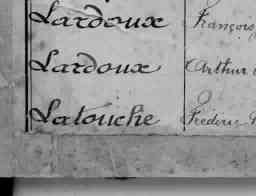 Lardoux François
Lardoux Arthur
Latouche Frédéric